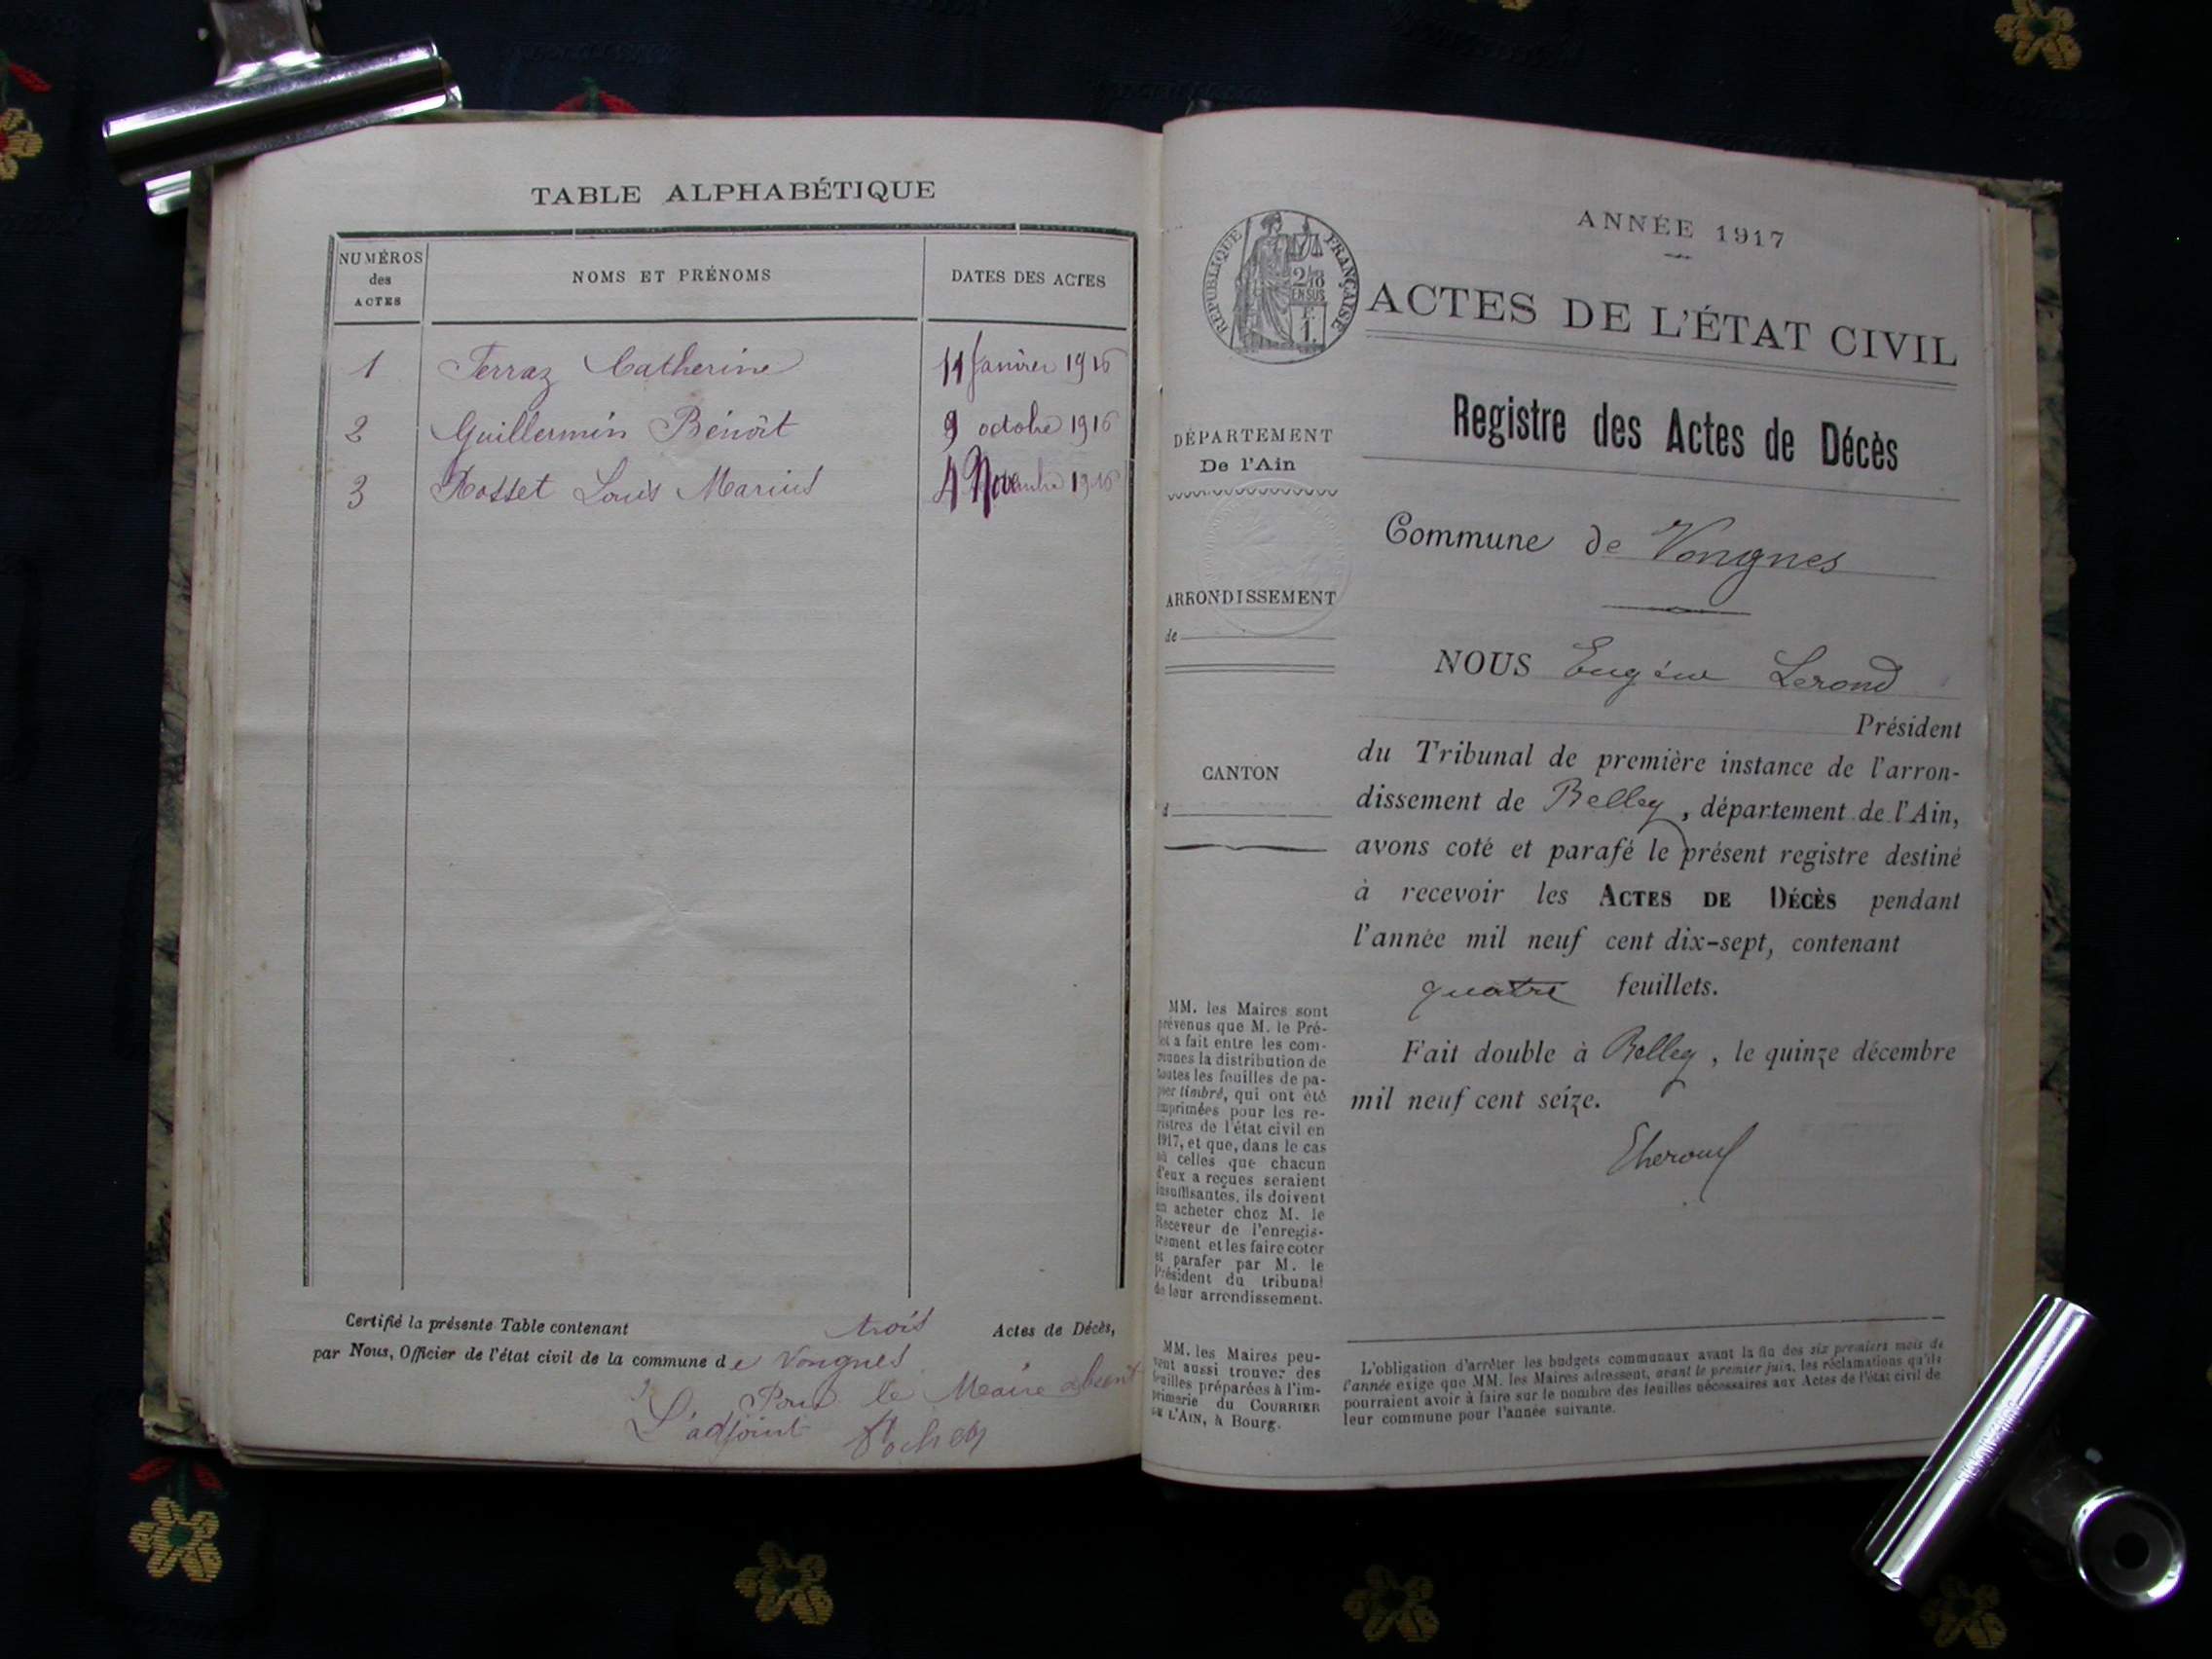 TABLE ALPHABÉTIQUE
NUMÉROS
des
ACTES
NOMS ET PRÉNOMS
DATES DES ACTES
1 Ferraz Catherine 11 Janvier 1916
2 Guillermin Bénoît 9 octobre 1916
3 Rosset Louis Marius 4 Novembre 1916
Certifié la présente Table contenant trois Actes de Décès,
par Nous, Officier de l'état civil de la commune de Vongnes
Pour le Maire absent
L'adjoint
ANNÉE 1917
RÉPUBLIQUE FRANÇAISE
2/10
EN SUS
1.
ACTES DE L'ÉTAT CIVIL
Registre des Actes de Décès
DÉPARTEMENT
De l'Ain
ARRONDISSEMENT
de
CANTON
d
MM. les Maires sont
prévenus que M. le Pré-
fet a fait entre les com-
munes la distribution de
toutes les feuilles de pa-
pier timbré, qui ont été
imprimées pour les re-
gistres de l'état civil en
1917, et que, dans le cas
où celles que chacun
d'eux a reçues seraient
insuffisantes, ils doivent
en acheter chez M. le
Receveur de l'enregis-
trement et les faire coter
et parafer par M. le
Président du tribunal
de leur arrondissement.
MM. les Maires peu-
vent aussi trouver des
feuilles préparées à l'im-
primerie du COURRIER
DE L'AIN, à Bourg.
Commune de Vongnes
NOUS Eugène Lerond
Président
du Tribunal de première instance de l'arron-
dissement de Belley, département de l'Ain,
avons coté et parafé le présent registre destiné
à recevoir les ACTES DE DÉCÈS pendant
l'année mil neuf cent dix-sept, contenant
quatre feuillets.
Fait double à Belley, le quinze décembre
mil neuf cent seize.
L'obligation d'arrêter les budgets communaux avant la fin des six premiers mois de
l'année exige que MM. les Maires adressent, avant le premier juin, les réclamations qu'ils
pourraient avoir à faire sur le nombre des feuilles nécessaires aux Actes de l'état civil de
leur commune pour l'année suivante.